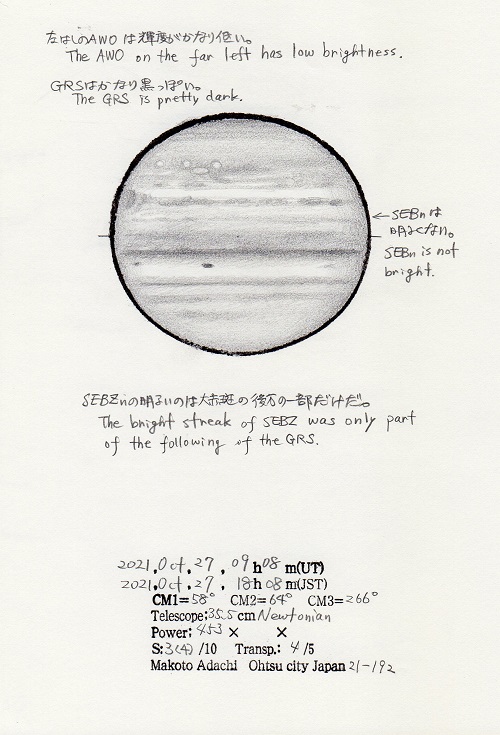 左はしのAWOは輝度がかなり低い。
The AWO on the far left has low brightness.
GRSはかなり黒っぽい。
The GRS is pretty dark.
←SEBnは
明るくない。
SEBn is not
bright.
SEBZnの明るいのは大赤斑の後方の一部だけだ。
The bright streak of SEBZ was only part
of the following of the GRS.
2021,Oct,27, 09h08m(UT)
2021,Oct,27, 18h08m(JST)
CM1=58° CM2=64° CM3=266°
Telescope:35.5cm Newtonian
Power: 453× ×
S:3(4)/10 Transp.: 4/5
Makoto Adachi Ohtsu city Japan 21-192